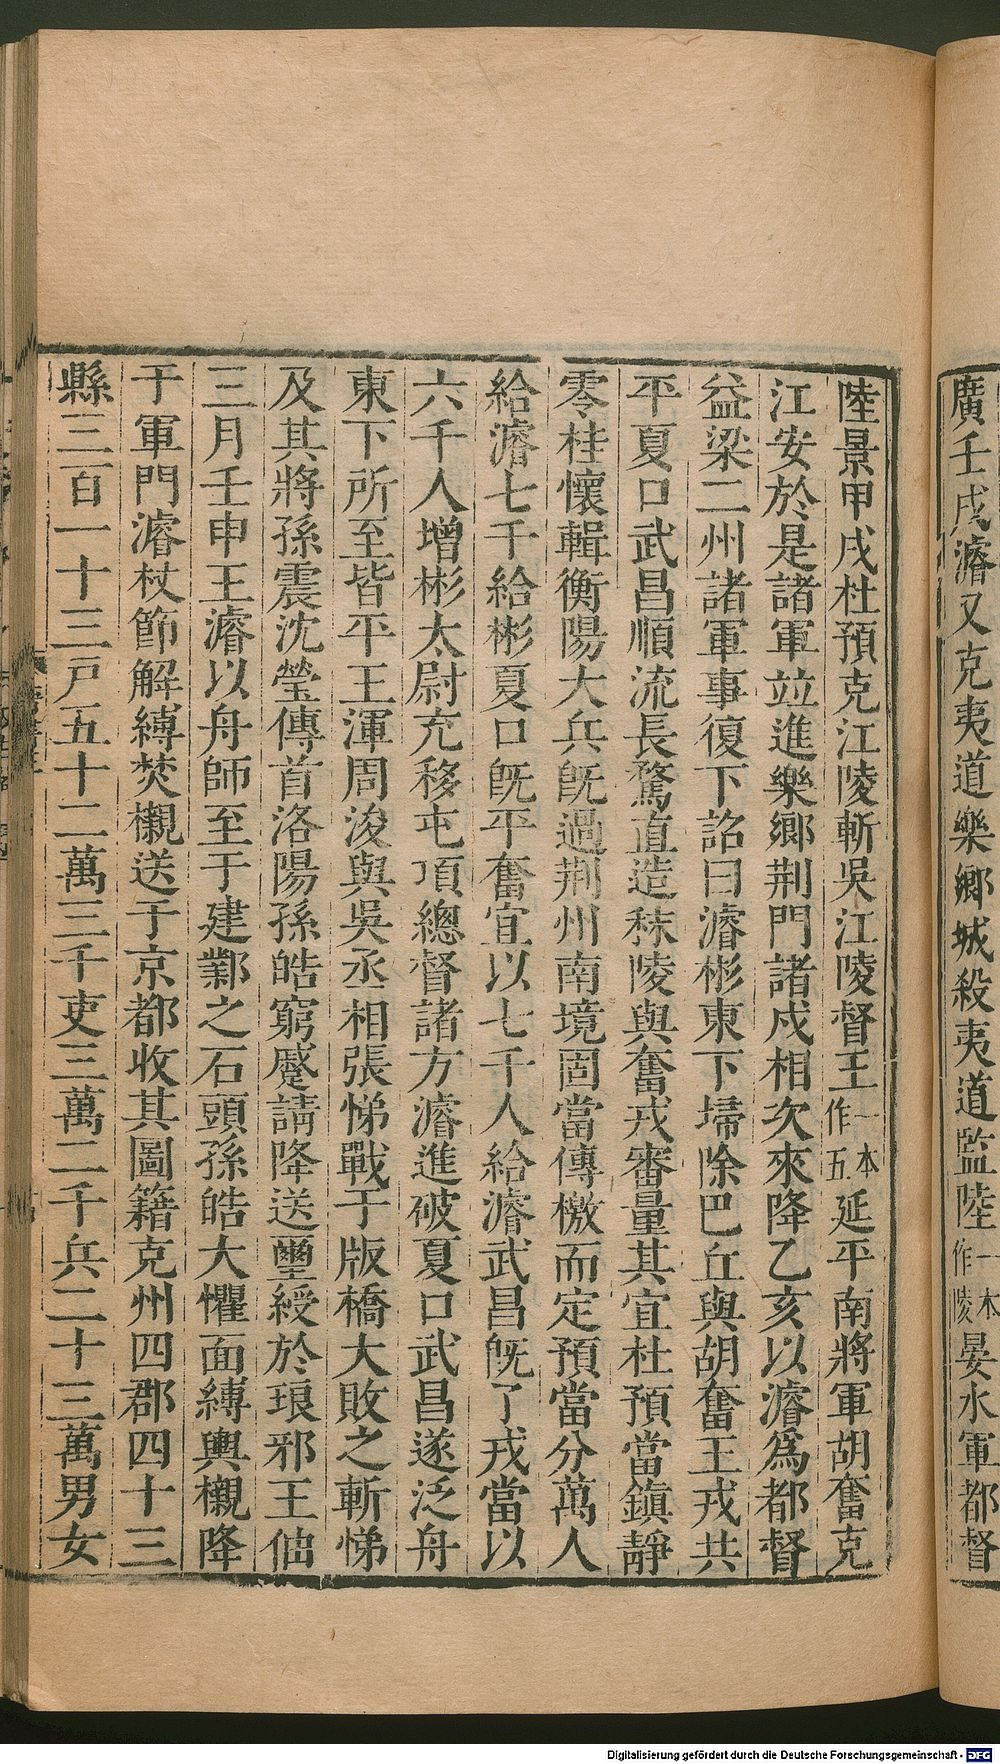 廣壬戌濬又克夷道樂鄉城殺夷道監陸一本作陵晏水軍都督
陸景甲戌杜預克江陵斬吳江陵督王一本作五延平南將軍胡奮克
江安於是諸軍竝進樂鄉荆門諸戍相次來降乙亥以濬爲都督
益梁二州諸軍事復下詔曰濬彬東下埽除巴丘與胡奮王戎共
平夏口武昌順流長騖直造秣陵與奮戎審量其宜杜預當鎭靜
零桂懷輯衡陽大兵旣過荆州南境固當傳檄而定預當分萬人
給濬七千給彬夏口旣平奮宜以七千人給濬武昌旣了戎當以
六千人增彬太尉充移屯項總督諸方濬進破夏口武昌遂泛舟
東下所至皆平王渾周浚與吳丞相張悌戰于版橋大敗之斬悌
及其將孫震沈瑩傳首洛陽孫皓窮蹙請降送璽綬於琅邪王伷
三月壬申王濬以舟師至于建鄴之石頭孫皓大懼面縛輿櫬降
于軍門濬杖節解縛焚櫬送于京都收其圖籍克州四郡四十三
縣三百一十三戸五十二萬三千吏三萬二千兵二十三萬男女
Digitalisierung gefördert durch die Deutsche Forschungsgemeinschaft - DFG